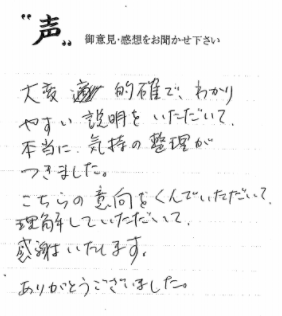 "声"
御意見・感想をお聞かせ下さい
大変 的確で、わかり
やすい説明をいただいて、
本当に、気持の整理が
つきました。
こちらの意向をくんでいただいて、
理解していただいて、
感謝いたします。
ありがとうございました。